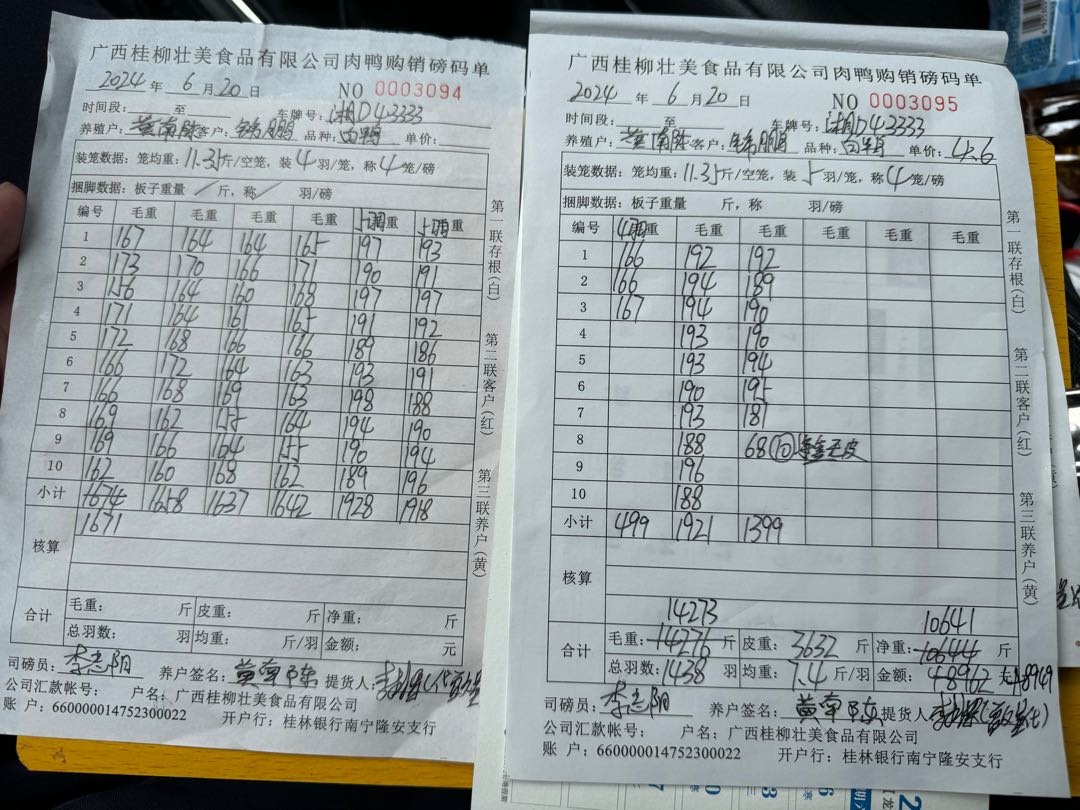 广西桂柳壮美食品有限公司肉鸭购销磅码单
2024 年 6 月 20 日 NO 0003094
时间段： 至 车牌号：湘D43333
养殖户：黄南陈 客户： 品种： 单价：
装笼数据：笼均重：11.35斤/空笼，装4羽/笼，称4笼/磅
捆脚数据：板子重量 / 斤，称 / 羽/磅
编号 毛重 毛重 毛重 毛重 5羽重 5羽重
1 167 164 164 165 197 193
2 173 170 166 171 190 191
3 156 164 160 168 197 197
4 171 164 161 165 191 192
5 172 168 166 166 189 186
6 166 172 164 163 193 191
7 166 168 169 163 198 188
8 169 162 155 164 194 190
9 169 166 164 155 190 194
10 162 160 168 162 189 196
小计 1674 1658 1637 1642 1928 1918
1671
核算
合计 毛重： 斤 皮重： 斤 净重： 斤
总羽数： 羽 均重： 斤/羽 金额： 元
司磅员：李志阳 养户签名：黄南陈 提货人：
公司汇款帐号： 户名：广西桂柳壮美食品有限公司
账 户：660000014752300022 开户行：桂林银行南宁隆安支行
第一联存根(白)
第二联客户(红)
第三联养户(黄)
广西桂柳壮美食品有限公司肉鸭购销磅码单
2024 年 6 月 20 日 NO 0003095
时间段： 至 车牌号：湘D43333
养殖户：黄南陈 客户： 品种： 单价：4.6
装笼数据：笼均重：11.35斤/空笼，装5羽/笼，称4笼/磅
捆脚数据：板子重量 斤，称 羽/磅
编号 4羽重 毛重 毛重 毛重 毛重 毛重
1 166 192 192
2 166 194 189
3 167 194 190
4 193 190
5 193 194
6 190 195
7 193 181
8 188 68 10
9 196
10 188
小计 499 1921 1399
核算
14273 10641
合计 毛重：14276 斤 皮重：3632 斤 净重：10644 斤
总羽数：1438 羽 均重：7.4 斤/羽 金额：48962 元 48949
司磅员：李志阳 养户签名：黄南陈 提货人
公司汇款帐号： 户名：广西桂柳壮美食品有限公司
账 户：660000014752300022 开户行：桂林银行南宁隆安支行
第一联存根(白)
第二联客户(红)
第三联养户(黄)